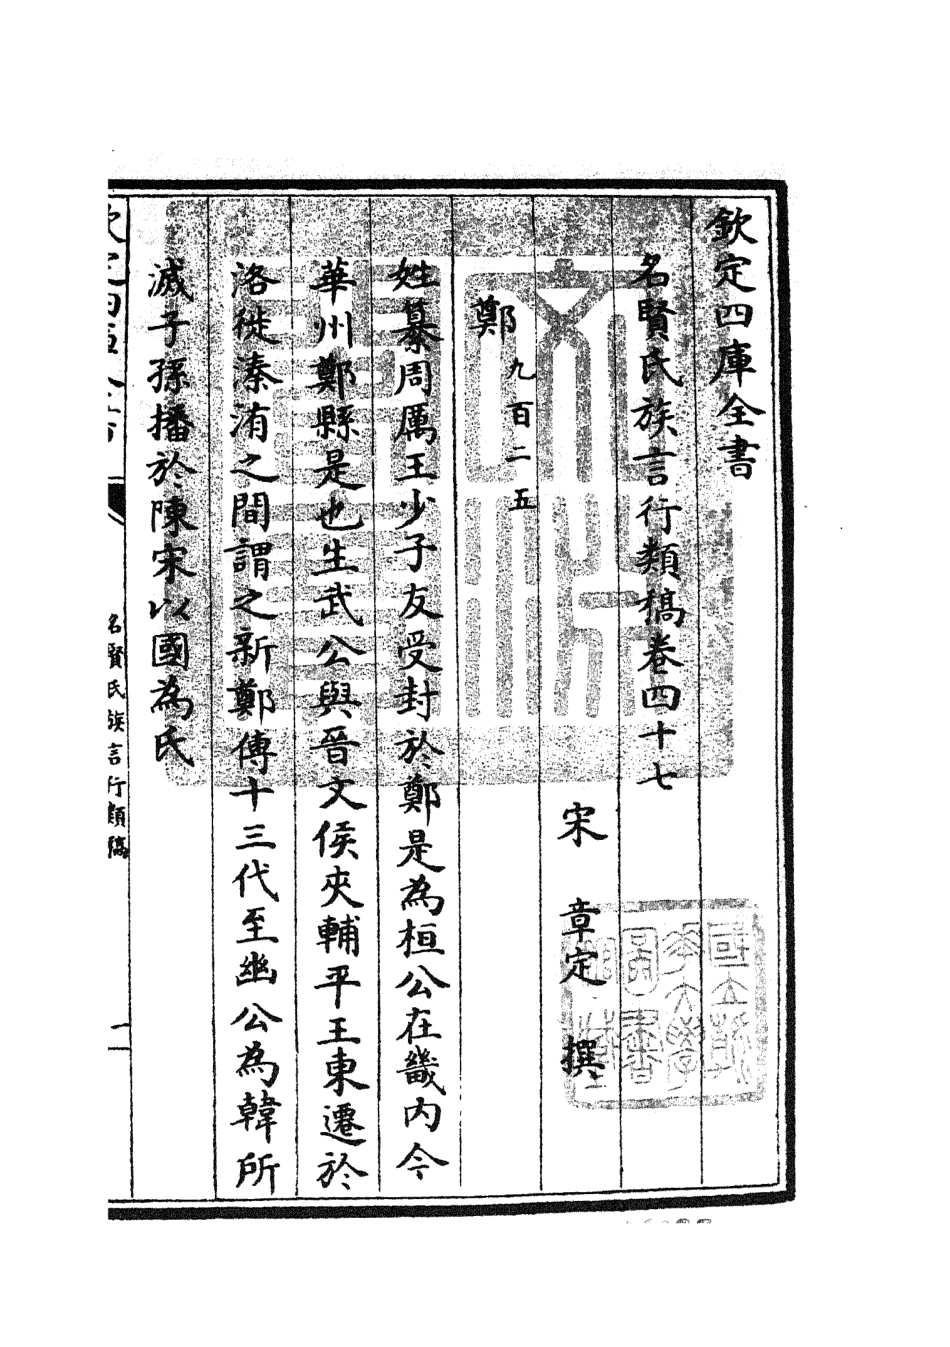 欽定四庫全書
名賢氏族言行類稿卷四十七
宋 章定 撰
鄭 九百二五
姓纂周厲王少子友受封於鄭是為桓公在畿内今
華州鄭縣是也生武公與晉文侯夾輔平王東遷於
洛徙溱洧之間謂之新鄭傳十三代至幽公為韓所
滅子孫播於陳宋以國為氏
名賢氏族言行類稿
一